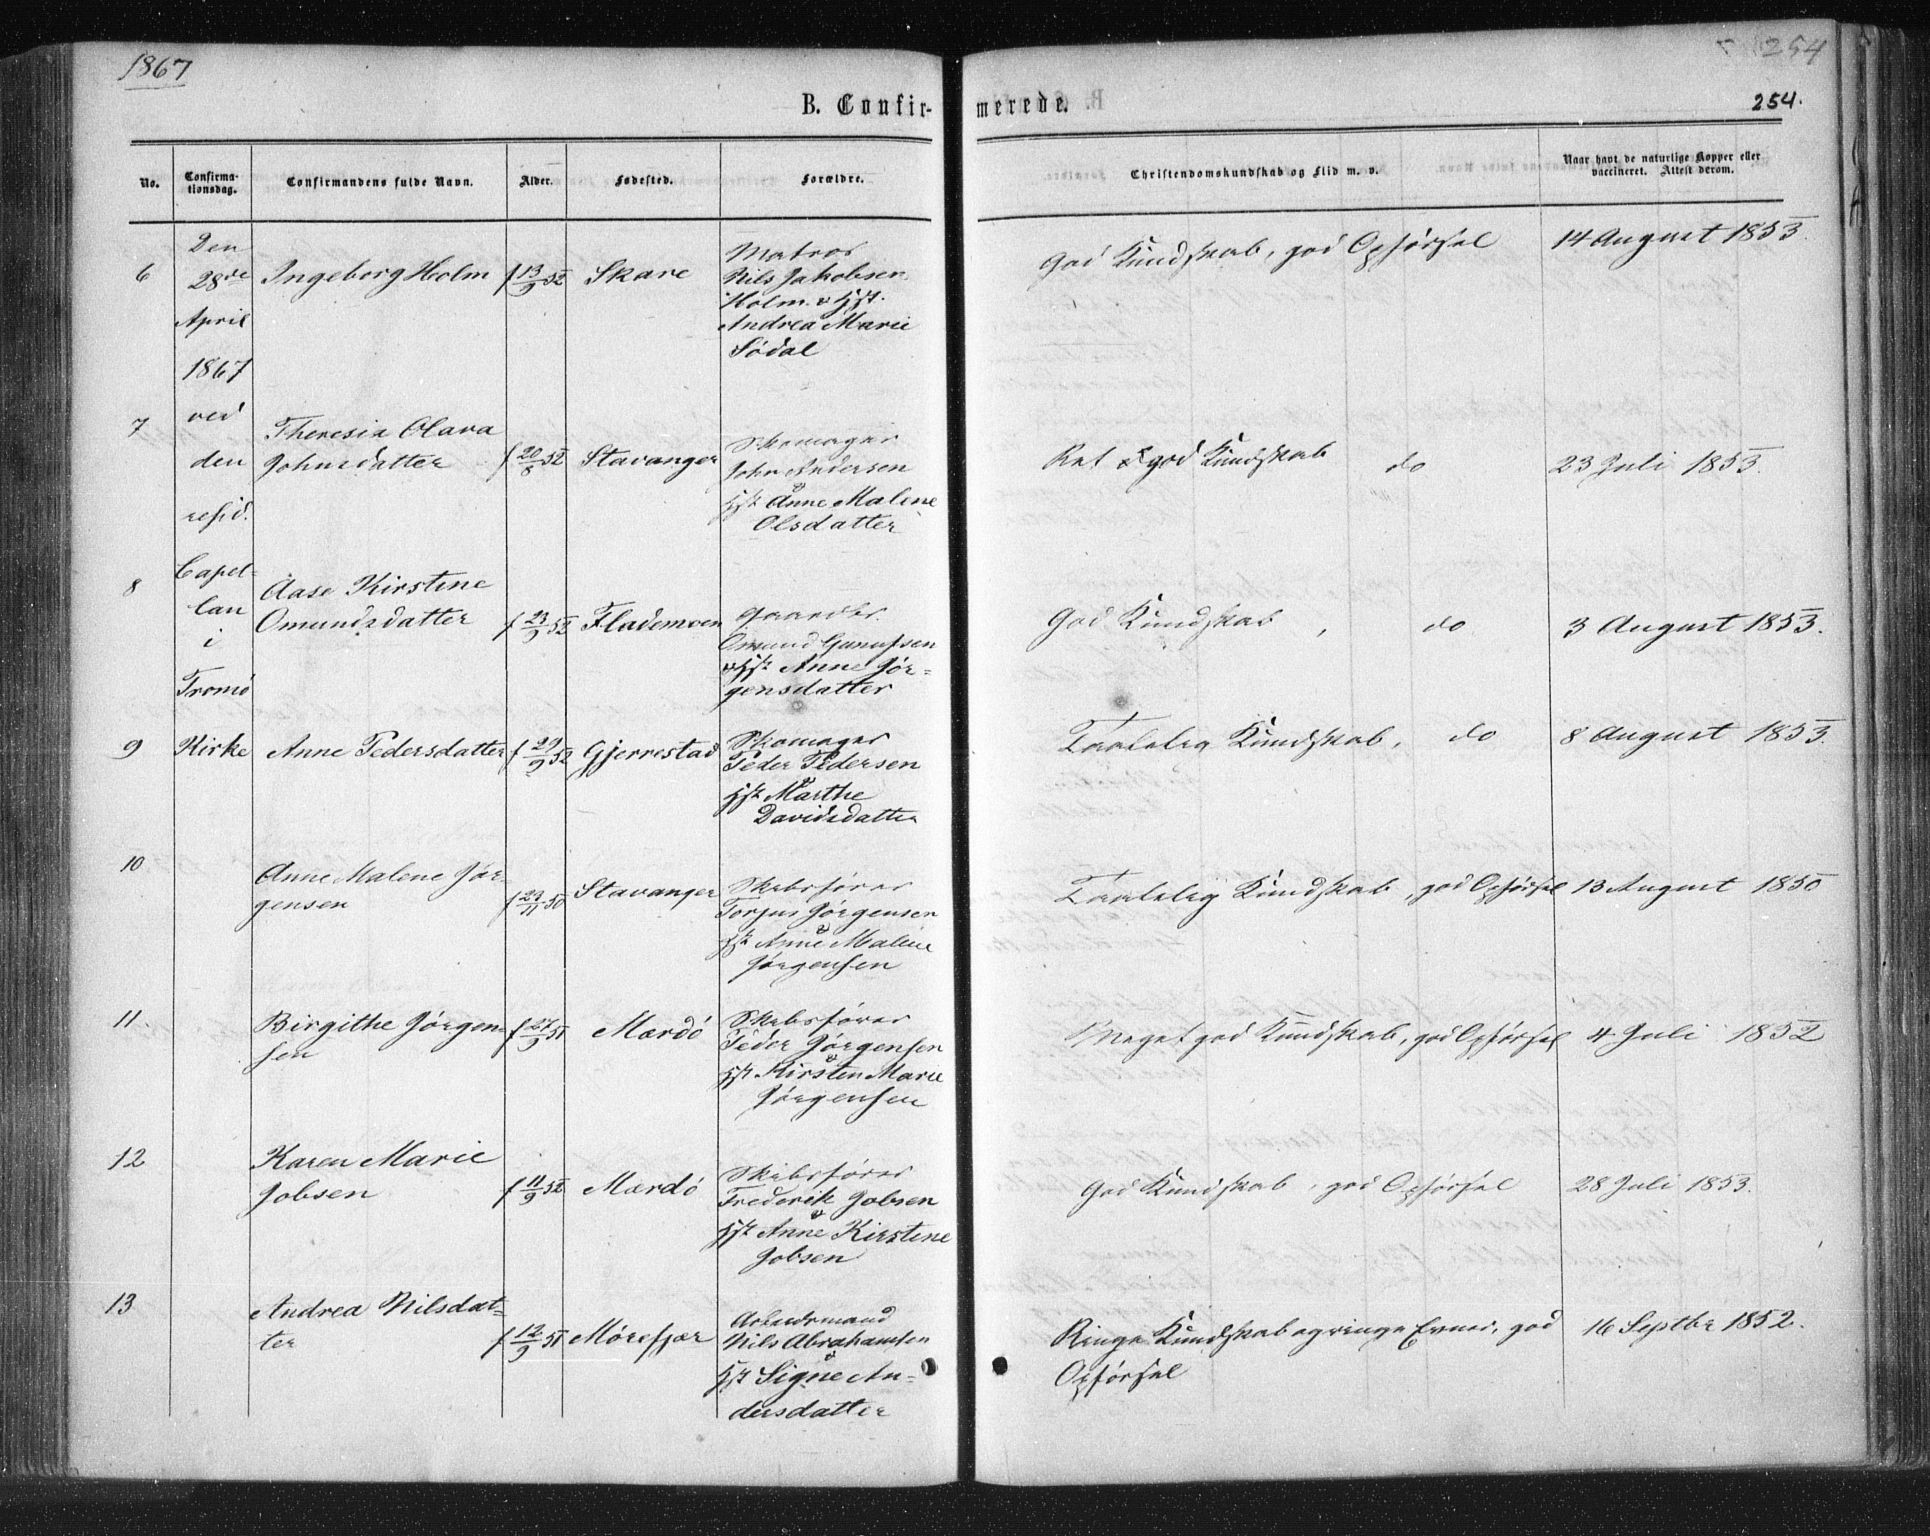 1867
254
B. Confirmerede.
254.
No.
Confirma-
tionsdag.
Confirmandens fulde Navn.
Alder.
Fødested.
Forældre.
Christendomskundskab og Flid m. v.
Naar havt de naturlige Kopper eller
vaccineret. Attest derom.
Den
28de
April
1867
ved
den
resid.
Capel-
lan
i
Tromö
Kirke
6
Ingeborg Holm
f 13/9 52
Skare
Matros
Nils Jakobsen
Holm. o Hst.
Andrea Marie
Södal
God Kundskab, god Opförsel
14 August 1853.
7
Theresia Olava
Johnsdatter
f 20/8 52
Stavanger
Skomager
John Andersen
o
Hst Anne Malene
Olsdatter
Ret god Kundskab do
23 Juli 1853.
8
Aase Kirstine
Omundsdatter
f 23/9 52
Flademoen
Gaardbr.
Omund Gunufsen
o Hst Anne Jör-
gensdatter
God Kundskab, do
3 August 1853.
9
Anne Pedersdatter
f 29/9 52
Gjerrestad
Skomager
Peder Pedersen
o
Hst Marthe
Davidsdatter
Taalelig Kundskab, do
8 August 1853.
10
Anne Malene Jör-
gensen
f 23/11 50
Stavanger
Skibsförer
Torjus Jörgensen
o
Hst Anne Malene
Jörgensen
Taalelig Kundskab, god Opförsel
13 August 1850
11.
Birgithe Jörgen-
sen
f 27/9 51
Mærdö
Skibsförer
Peder Jörgensen
o
Hst Kirsten Marie
Jörgensen
Meget god Kundskab, god Opförsel
4 Juli 1852
12
Karen Marie
Jobsen
f 11/9 52
Mærdö
Skibsförer
Frederik Jobsen
o
Hst Anne Kirstine
Jobsen
God Kundskab, god Opförsel
28 Juli 1853.
13
Andrea Nilsdat-
ter
f 12/9 51
Mörefjær
Arbeidsmand
Nils Abrahamsen
o
Hst Signe An-
dersdatter
Ringe Kundskab og ringe Evner, god
Opförsel
16 Septbr 1852.